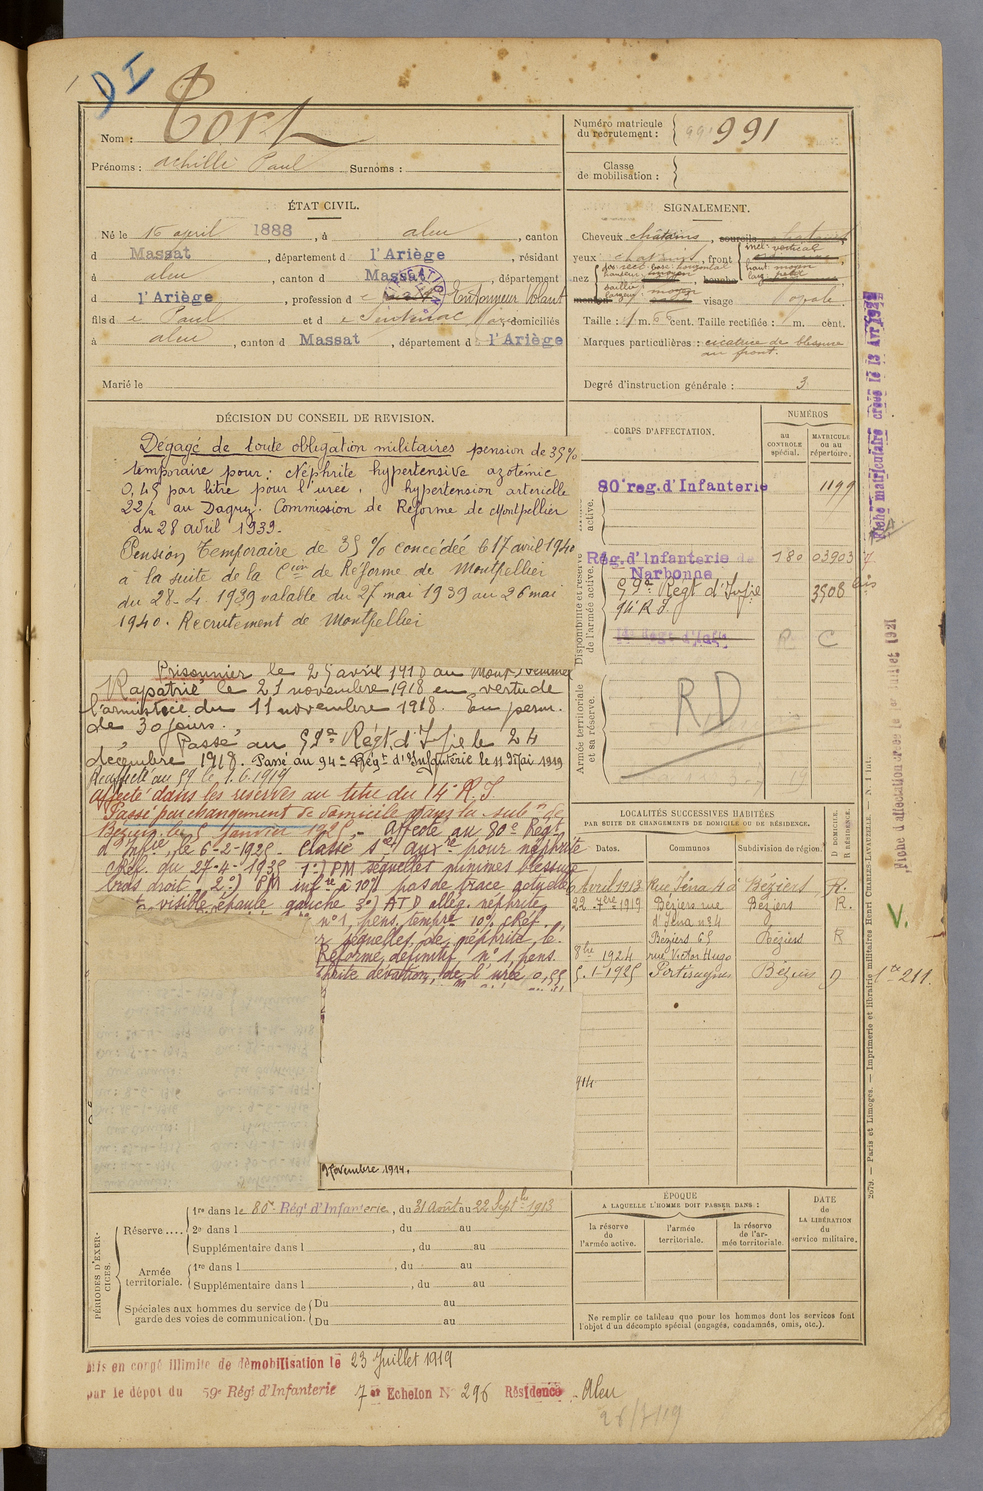 D I
Nom : Tort
Prénoms : Achille Paul Surnoms :
Numéro matricule du recrutement : 991
Classe de mobilisation :
ÉTAT CIVIL.
Né le 16 april 1888, à aleu, canton
d Massat, département d l'Ariège, résidant
à aleu, canton d Massat, département
d l'Ariège, profession d Entonneur Volant
fils d e Paul et d e Sentenac domiciliés
à aleu, canton d Massat, département d l'Ariège
Marié le
SIGNALEMENT.
Cheveux chatains, sourcils
yeux, front incl: verticale
haut: moyen
nez base: horizontal
saillie: moyen
visage ovale.
Taille : 1 m. 66 cent. Taille rectifiée : 1 m. cent.
Marques particulières : cicatrice de blessure
au front.
Degré d'instruction générale : 3
DÉCISION DU CONSEIL DE REVISION.
Dégagé de toute obligation militaires pension de 35%
temporaire pour : Néphrite hypertensive azotémie
0,45 par litre pour l'urée. hypertension artérielle
22/ au Commission de Réforme de Montpellier
du 28 avril 1939-
Pension Temporaire de 35 % concédée le 17 avril 1940
à la suite de la Cion de Réforme de Montpellier
du 28-4-1939 valable du 27 mai 1939 au 26 mai
1940. Recrutement de Montpellier
Prisonnier le 25 avril 1918 au Mont
Rapatrié le 21 novembre 1918 en vertu de
l'armistice du 11 novembre 1918. En perm.
de 30 jours.
Passé au 59e Régt d'Ifie le 24
décembre 1918. Passé au 94e Régt d'Infanterie le 11 Mai 1919
Réaffecté au 59 le 1.6.1919
affecté dans les réserves au titre du 14e R.I.
Passé par changement de domicile dans la subon de
Béziers le 5 Janvier 1925 - Affecté au 80e Régt
d'Infrie, le 6-2-1925. Classé sce auxre pour néphrite
cRéf. du 27-4-1935 1°) PM séquelles minimes blessure
bras droit, 2°) PM infre à 10% pas de trace actuelle
visible épaule gauche 3°) ATD allég. néphrite
n°1, pens. tempre 10% cRéf.
séquelles de néphrite le
Réforme définitif n°1 pens.
de l'urée 0,55
9 Novembre 1914.
CORPS D'AFFECTATION.
NUMÉROS
au CONTROLE spécial.
MATRICULE ou au répertoire.
active.
80e rég. d'Infanterie 1199
Disponibilité et réserve de l'armée active.
Rég. d'Infanterie de Narbonne 180 03903
59e Regt d'Infie 3508 bis
94e R I
14e Regt d'Infie R C
Armée territoriale et sa réserve.
RD
LOCALITÉS SUCCESSIVES HABITÉES
PAR SUITE DE CHANGEMENTS DE DOMICILE OU DE RÉSIDENCE.
Dates. Communes Subdivision de région.
D DOMICILE.
R RÉSIDENCE.
6 Avril 1913 Rue Iéna 4 à Béziers R.
22 7bre 1919 Béziers rue d'Iéna n° 4 Béziers R.
8bre 1924 Béziers 65 rue Victor Hugo Béziers R
5.1-1925 Portiragnes Béziers D
914
PÉRIODES D'EXERCICES.
Réserve....
1re dans le 80e Régt d'Infanterie, du 31 Août au 22 Septbre 1913
2e dans l , du au
Supplémentaire dans l , du au
Armée territoriale.
1re dans l , du au
Supplémentaire dans l , du au
Spéciales aux hommes du service de garde des voies de communication.
Du au
Du au
ÉPOQUE
A LAQUELLE L'HOMME DOIT PASSER DANS :
la réserve de l'armée active.
l'armée territoriale.
la réserve de l'armée territoriale.
DATE
de LA LIBÉRATION du service militaire.
Ne remplir ce tableau que pour les hommes dont les services font
l'objet d'un décompte spécial (engagés, condamnés, omis, etc.).
Mis en congé illimité de démobilisation le 23 Juillet 1919
par le dépôt du 59e Régt d'Infanterie 7e Echelon N° 296 Résidence Aleu
26/7/19
Fiche matriculaire créée le 13 Avr 1921
Fiche d'affectation créée le 1er Juillet 1921
V.
211.
2679. — Paris et Limoges. — Imprimerie et librairie militaires Henri CHARLES-LAVAUZELLE. — N. 1 int.